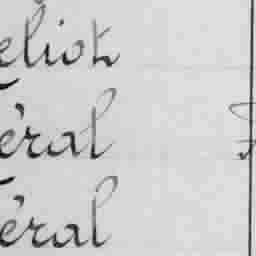 eliot
éral
éral